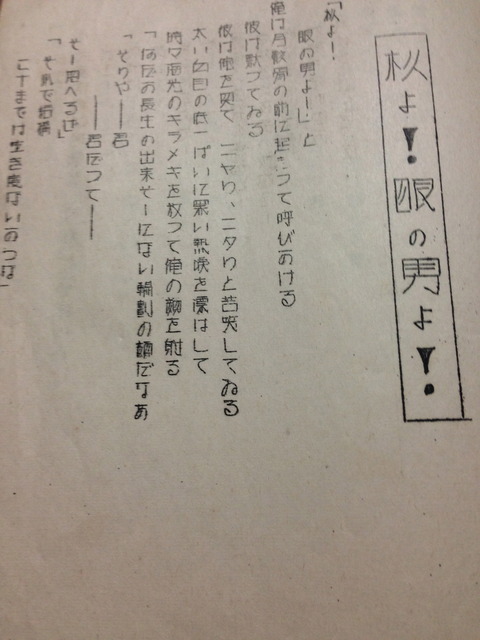 松よ！眼の男よ！
「松よー！
眼の男よー！」と
俺は月穀寮の前に起つて呼びかける
彼は黙つてゐる
彼は俺を見て ニヤリ、ニタリと苦笑してゐる
太い白目の底一ぱいに黒い熱咲を漂はして
時々稲光のキラメキを放つて俺の顔を射る
「なんだか長生の出来そーにない輪劃の顔だなあ
「それや——君
——君だつて——
そー思へるぜ」
「それで結構
三十までは生き度ないのつな」